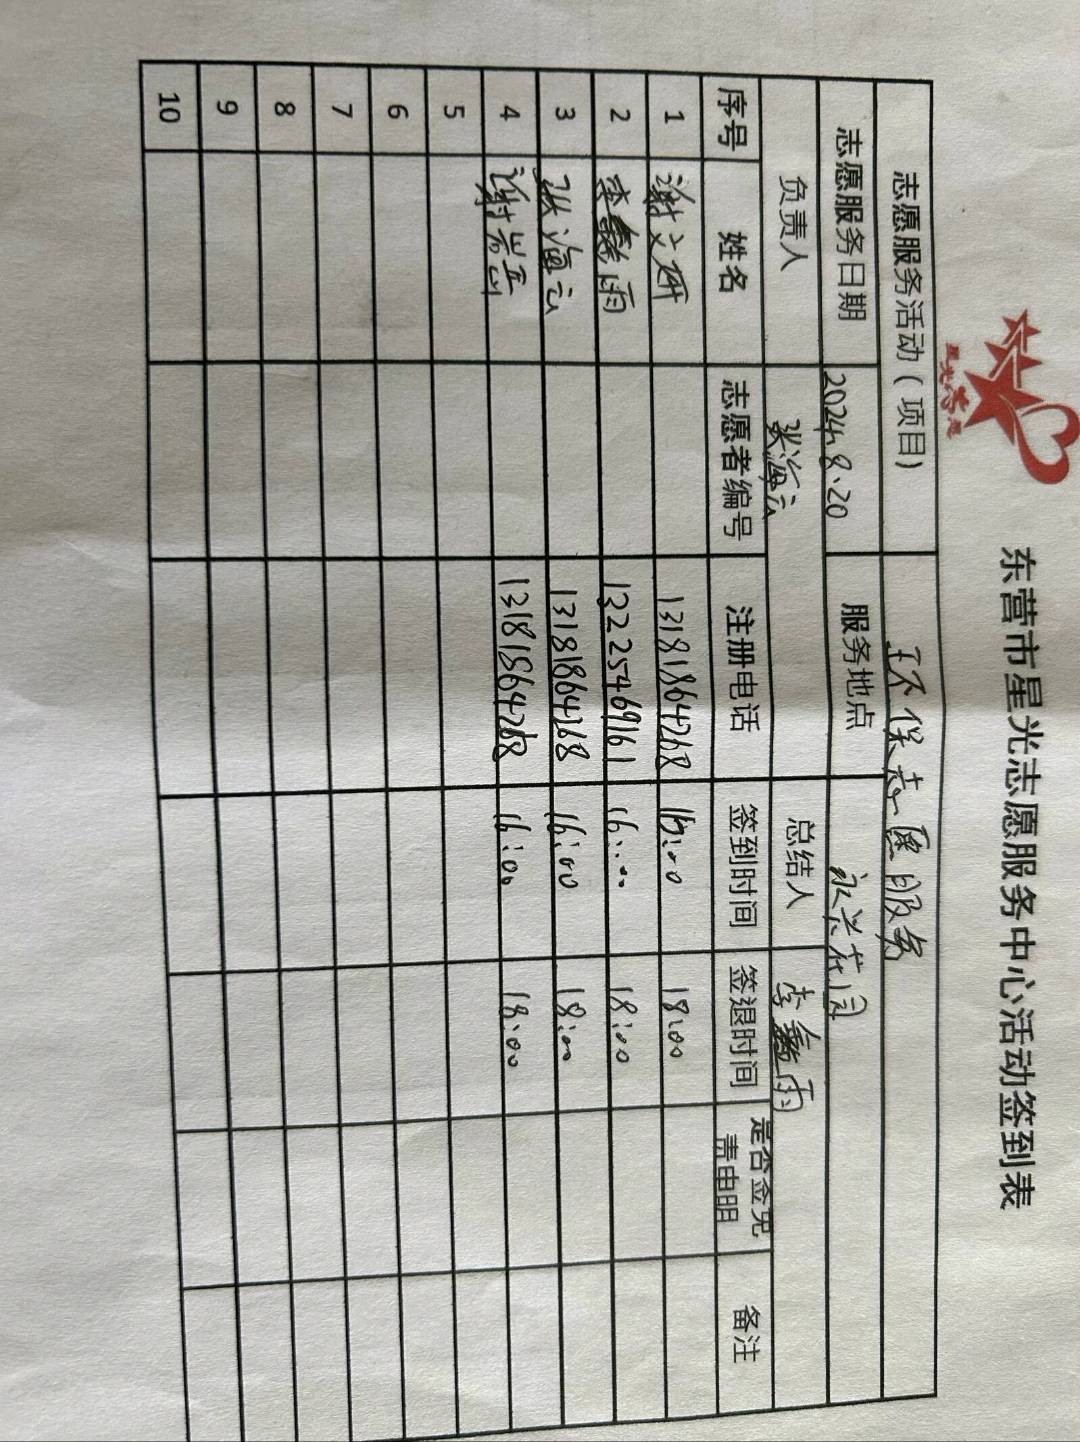 星光志愿
东营市星光志愿服务中心活动签到表
志愿服务活动（项目） 环保志愿服务
志愿服务日期 2024.8.20 服务地点 永兴花园
负责人 张海云 总结人 李鑫雨
序号 姓名 志愿者编号 注册电话 签到时间 签退时间 是否签免责申明 备注
1 谢文妍 13181864268 16:00 18:00
2 李鑫雨 13225469161 16:00 18:00
3 张海云 13181864268 16:00 18:00
4 13181864268 16:00 18:00
5
6
7
8
9
10